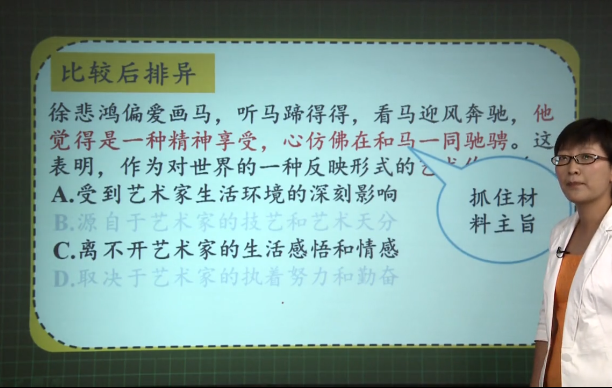 比较后排异
徐悲鸿偏爱画马，听马蹄得得，看马迎风奔驰，他
觉得是一种精神享受，心仿佛在和马一同驰骋。这
表明，作为对世界的一种反映形式的艺术
A.受到艺术家生活环境的深刻影响
B.源自于艺术家的技艺和艺术天分
C.离不开艺术家的生活感悟和情感
D.取决于艺术家的执着努力和勤奋
抓住材
料主旨